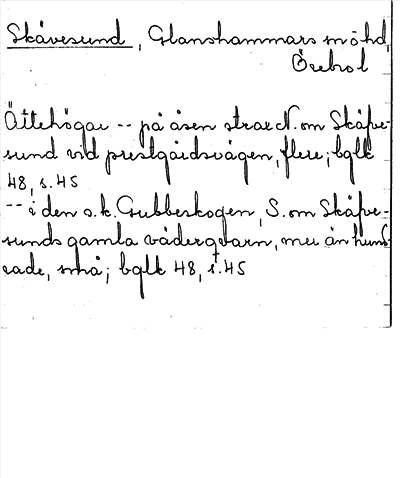 Skävesund, Glanshammars sn ö hd,
Örebro l
Ättehögar -- på åsen strax N. om Skäfve-
sund vid prestgårdsvägen, flere; bglk
48, s. 45
-- i den s.k. Gubbeskogen, S. om Skäfve-
sunds gamla väderqvarn, mer än hund-
rade, små; bglk 48, s. 45